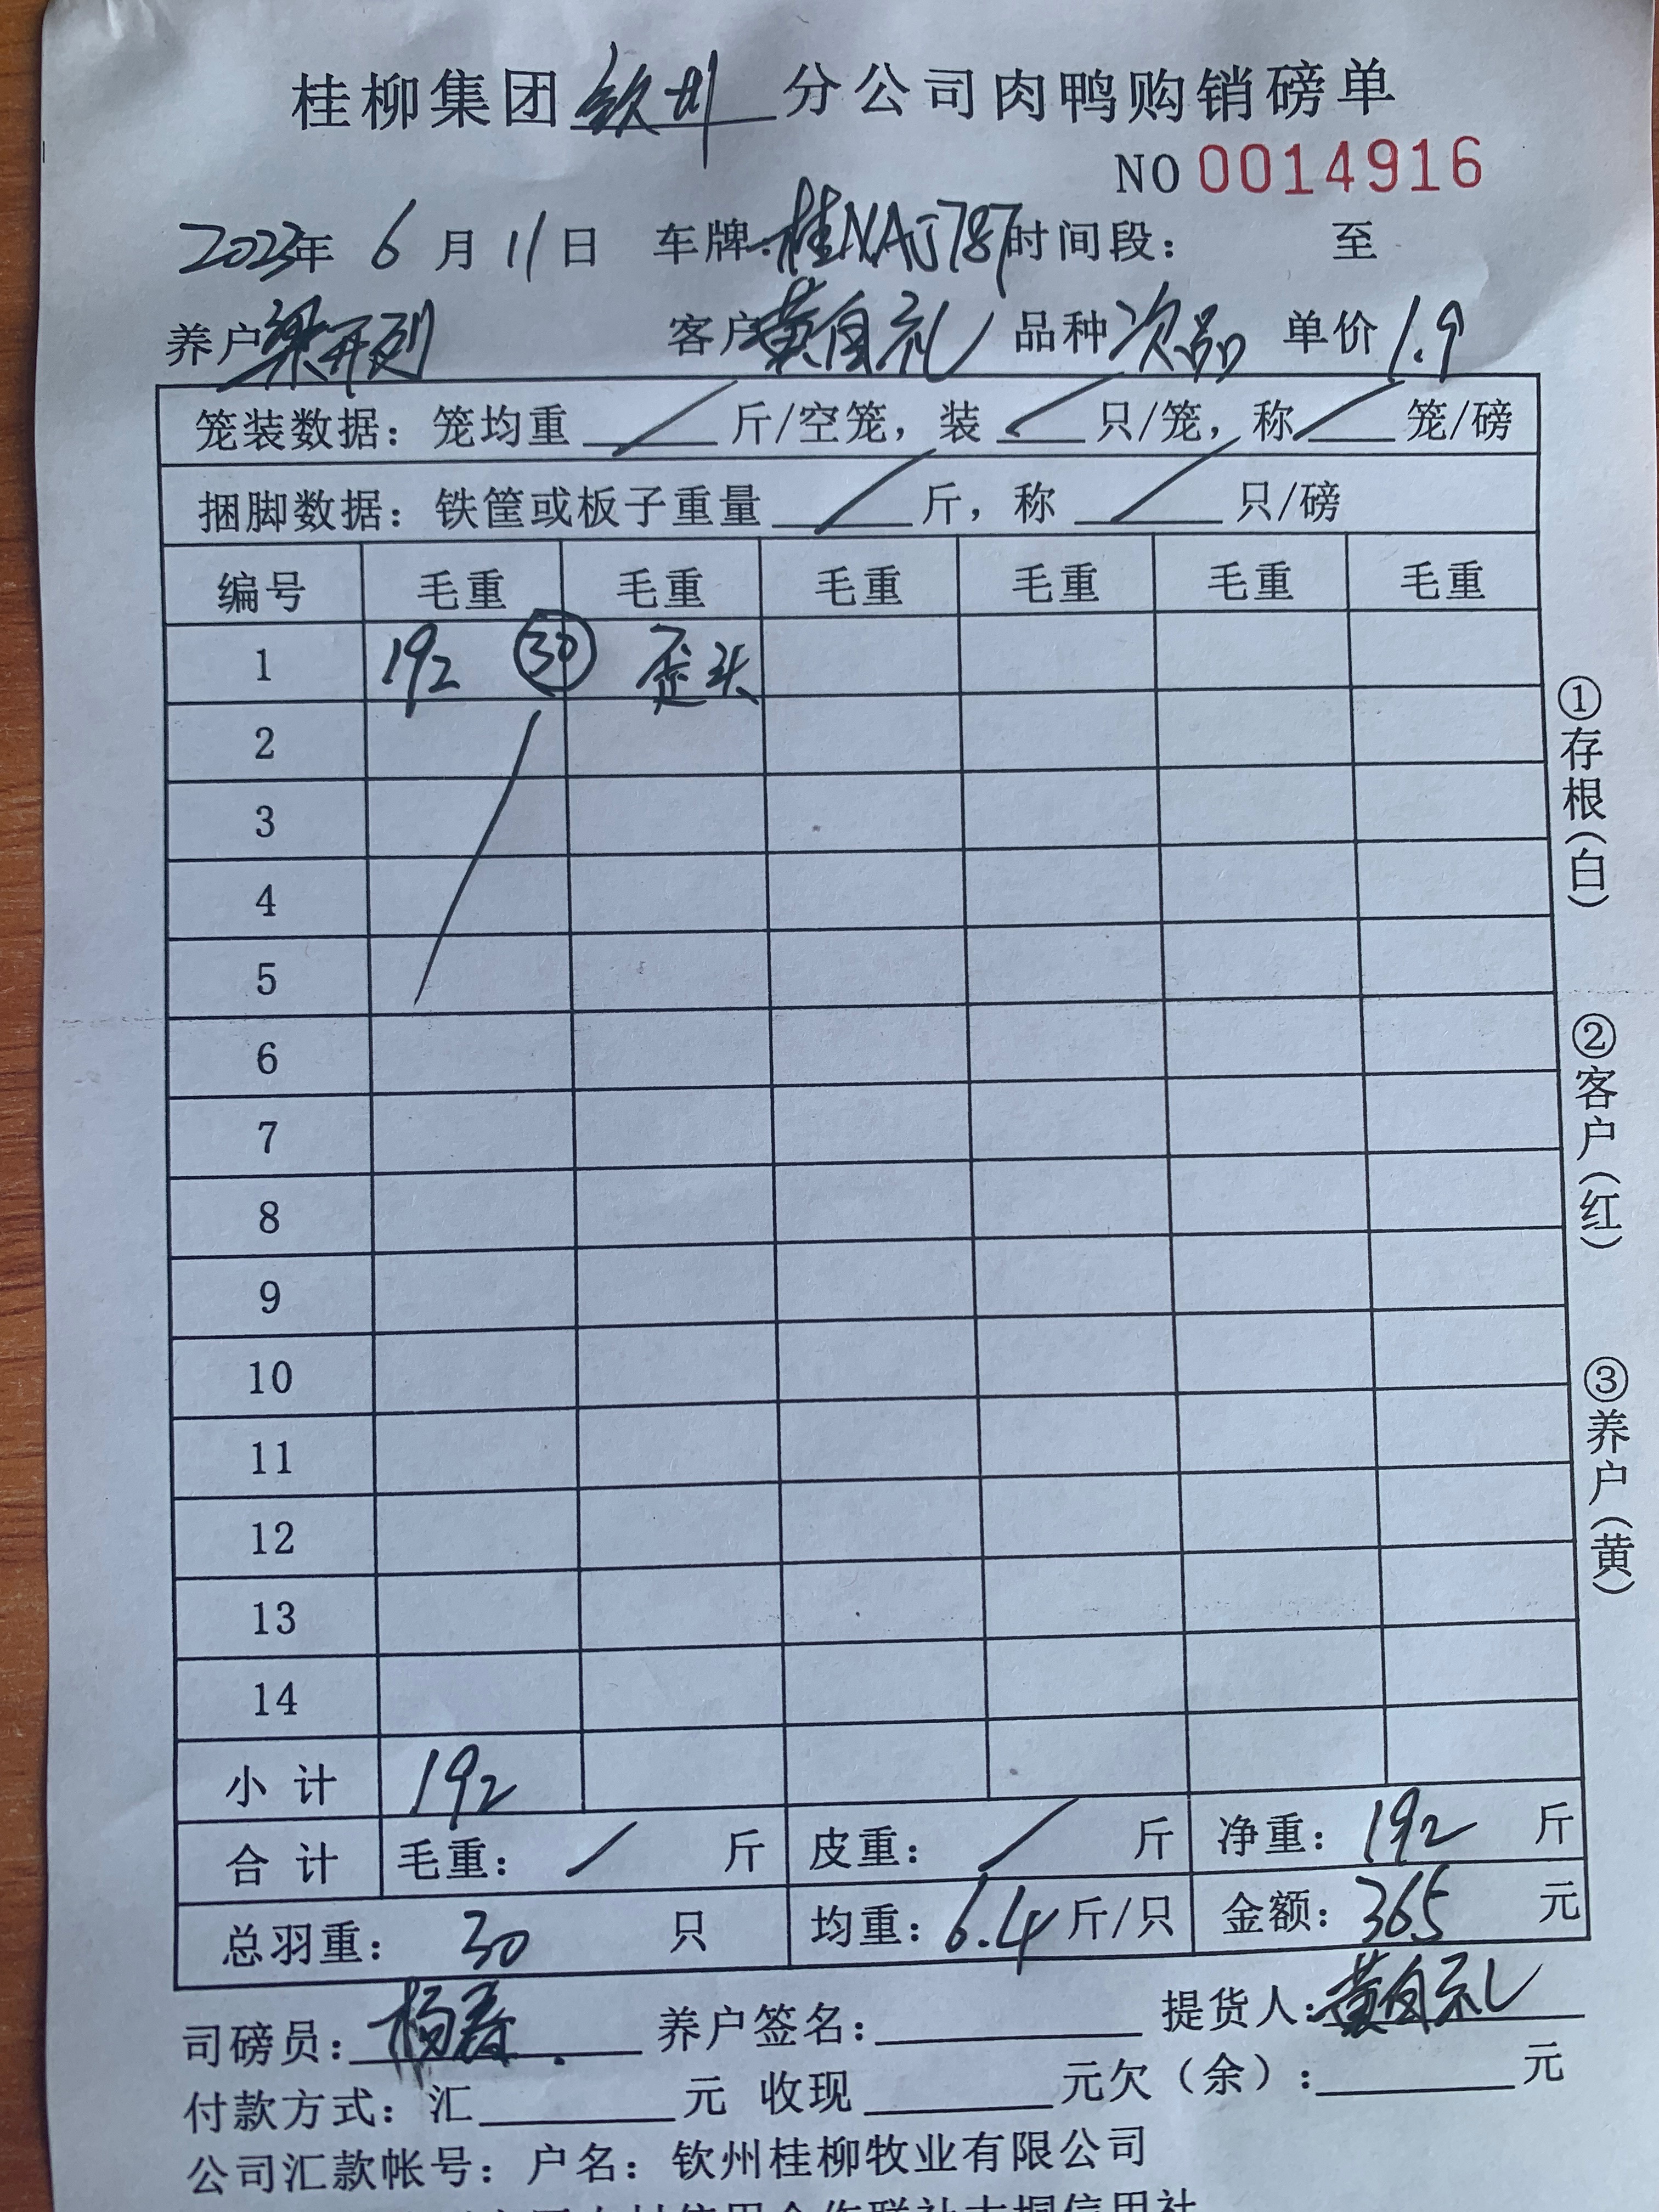 桂柳集团钦州分公司肉鸭购销磅单
NO 0014916
2023年 6月 11日 车牌:桂NAJ787时间段: 至
养户梁开列 客户黄自礼 品种次品 单价1.9
笼装数据: 笼均重/斤/空笼, 装/只/笼, 称/笼/磅
捆脚数据: 铁筐或板子重量/斤, 称/只/磅
编号 毛重 毛重 毛重 毛重 毛重 毛重
1 192 30 歪头
2
3
4
5
6
7
8
9
10
11
12
13
14
小计 192
合计 毛重: / 斤 皮重: / 斤 净重: 192 斤
总羽重: 30 只 均重: 6.4 斤/只 金额: 365 元
司磅员: 杨寿. 养户签名: 提货人: 黄自礼
付款方式: 汇 元 收现 元欠(余): 元
公司汇款帐号: 户名: 钦州桂柳牧业有限公司
①存根(白)
②客户(红)
③养户(黄)